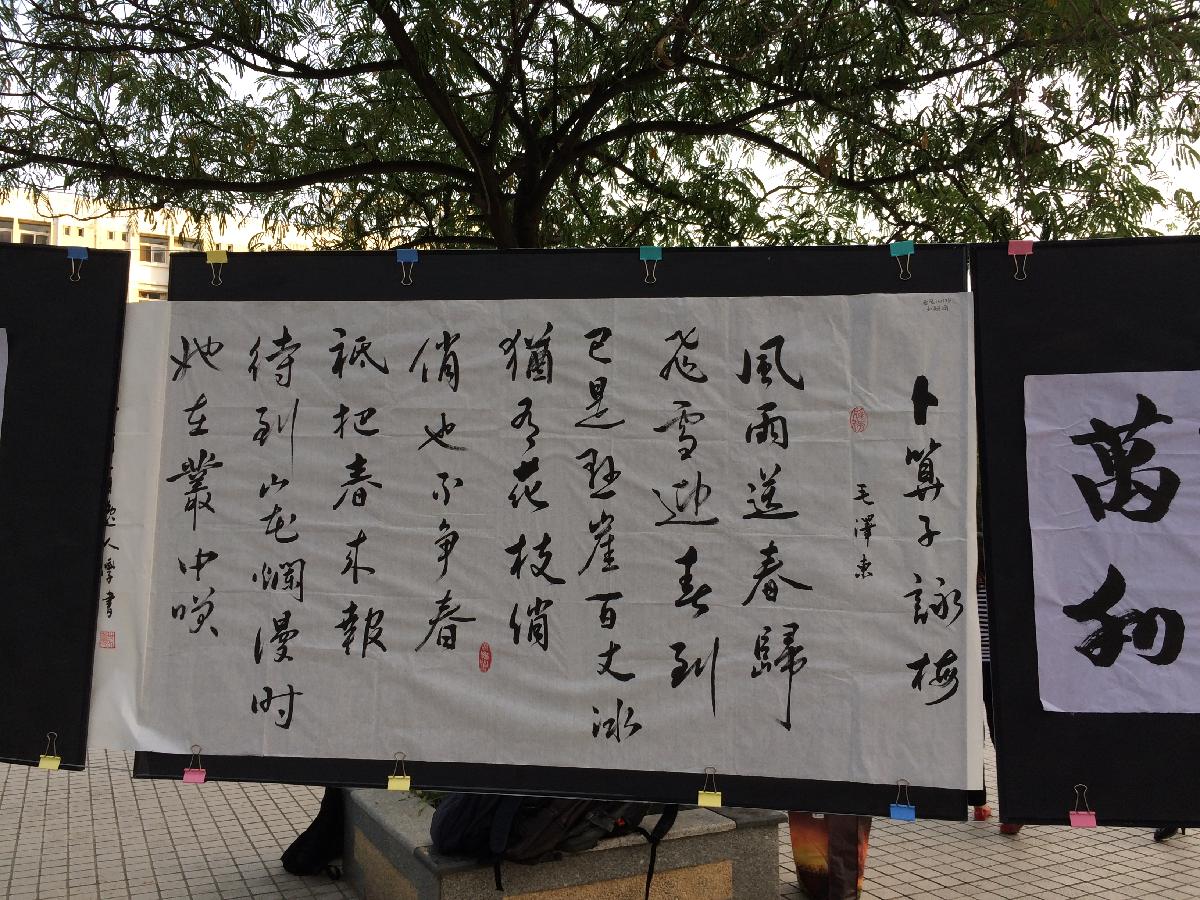 萬利
卜算子詠梅
毛澤東
風雨送春歸
飛雪迎春到
已是懸崖百丈冰
猶有花枝俏
俏也不争春
祇把春来報
待到山花爛漫时
她在叢中咲
人學書